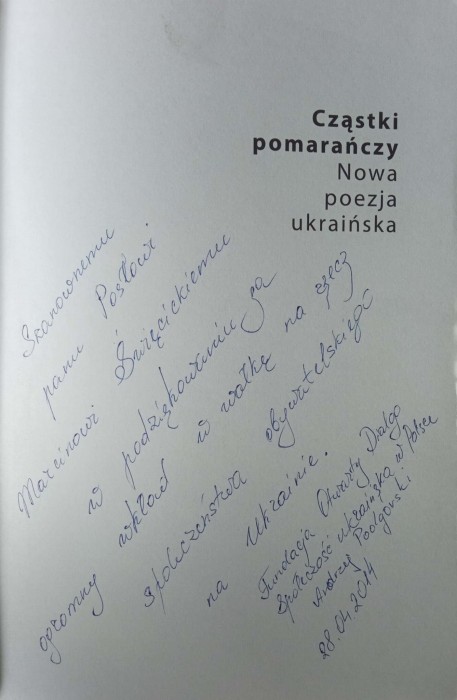 Cząstki
pomarańczy
Nowa
poezja
ukraińska
Szanownemu
panu Posłowi
Marcinowi Święcickiemu
w podziękowaniu za
ogromny wkład w walkę na rzecz
społeczeństwa obywatelskiego
na Ukrainie.
Fundacja Otwarty Dialog
Społeczność ukraińska w Polsce
Andrzej Podgórski
28.04.2014